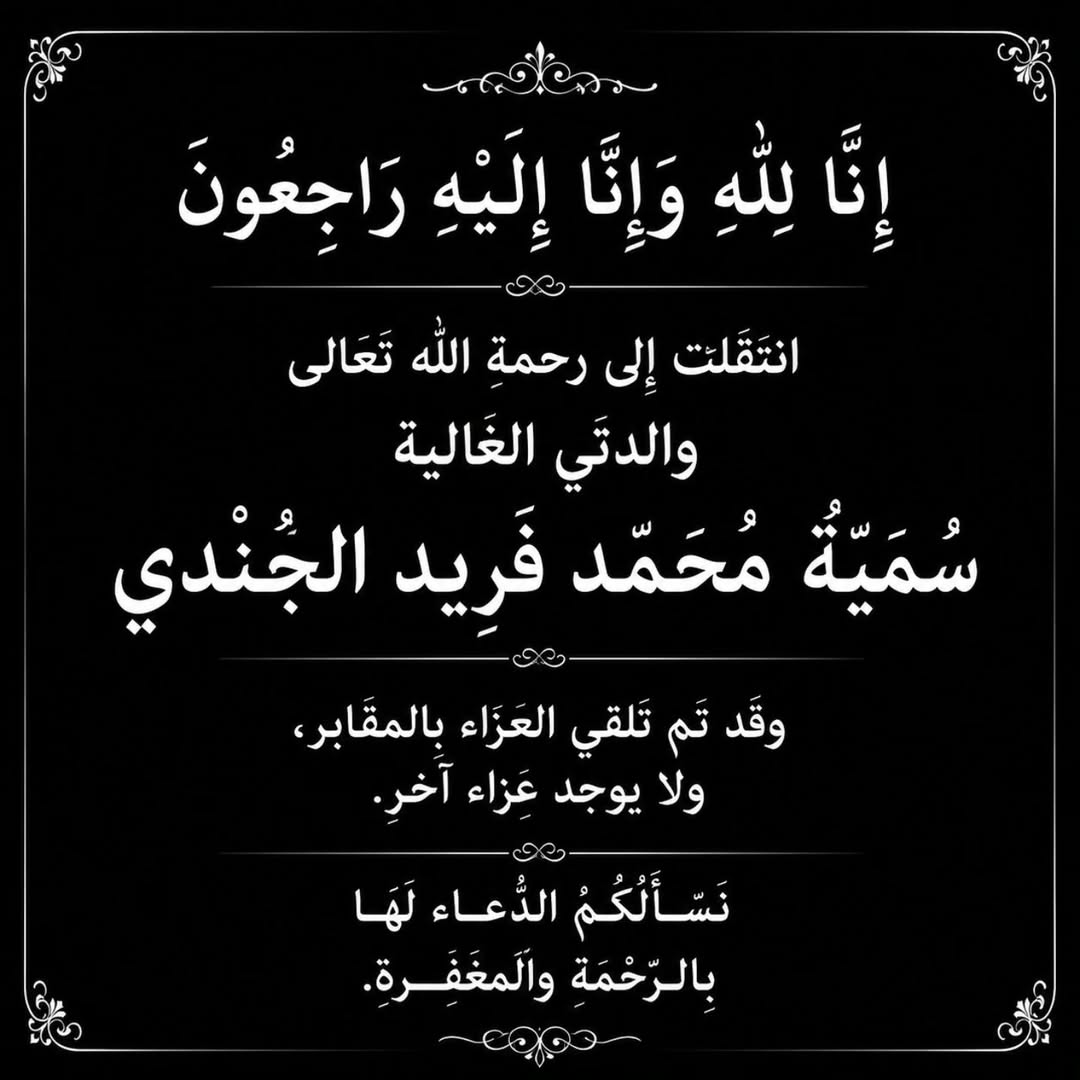 إِنَّا لِلّٰهِ وَإِنَّا إِلَيْهِ رَاجِعُونَ
انتَقَلت إِلى رحمةِ اللّٰه تَعَالى
والدتَي الغَالية
سُمَيّةُ مُحَمّد فَرِيد الجُنْدي
وقَد تَم تَلقي العَزَاء بِالمقَابر،
ولا يوجد عَزِاء آخرِ.
نَسّــأَلُكُـمُ الدُّعــاء لَهَـا
بِالـرّحْمَةِ والَمغَفَِــرةِ.